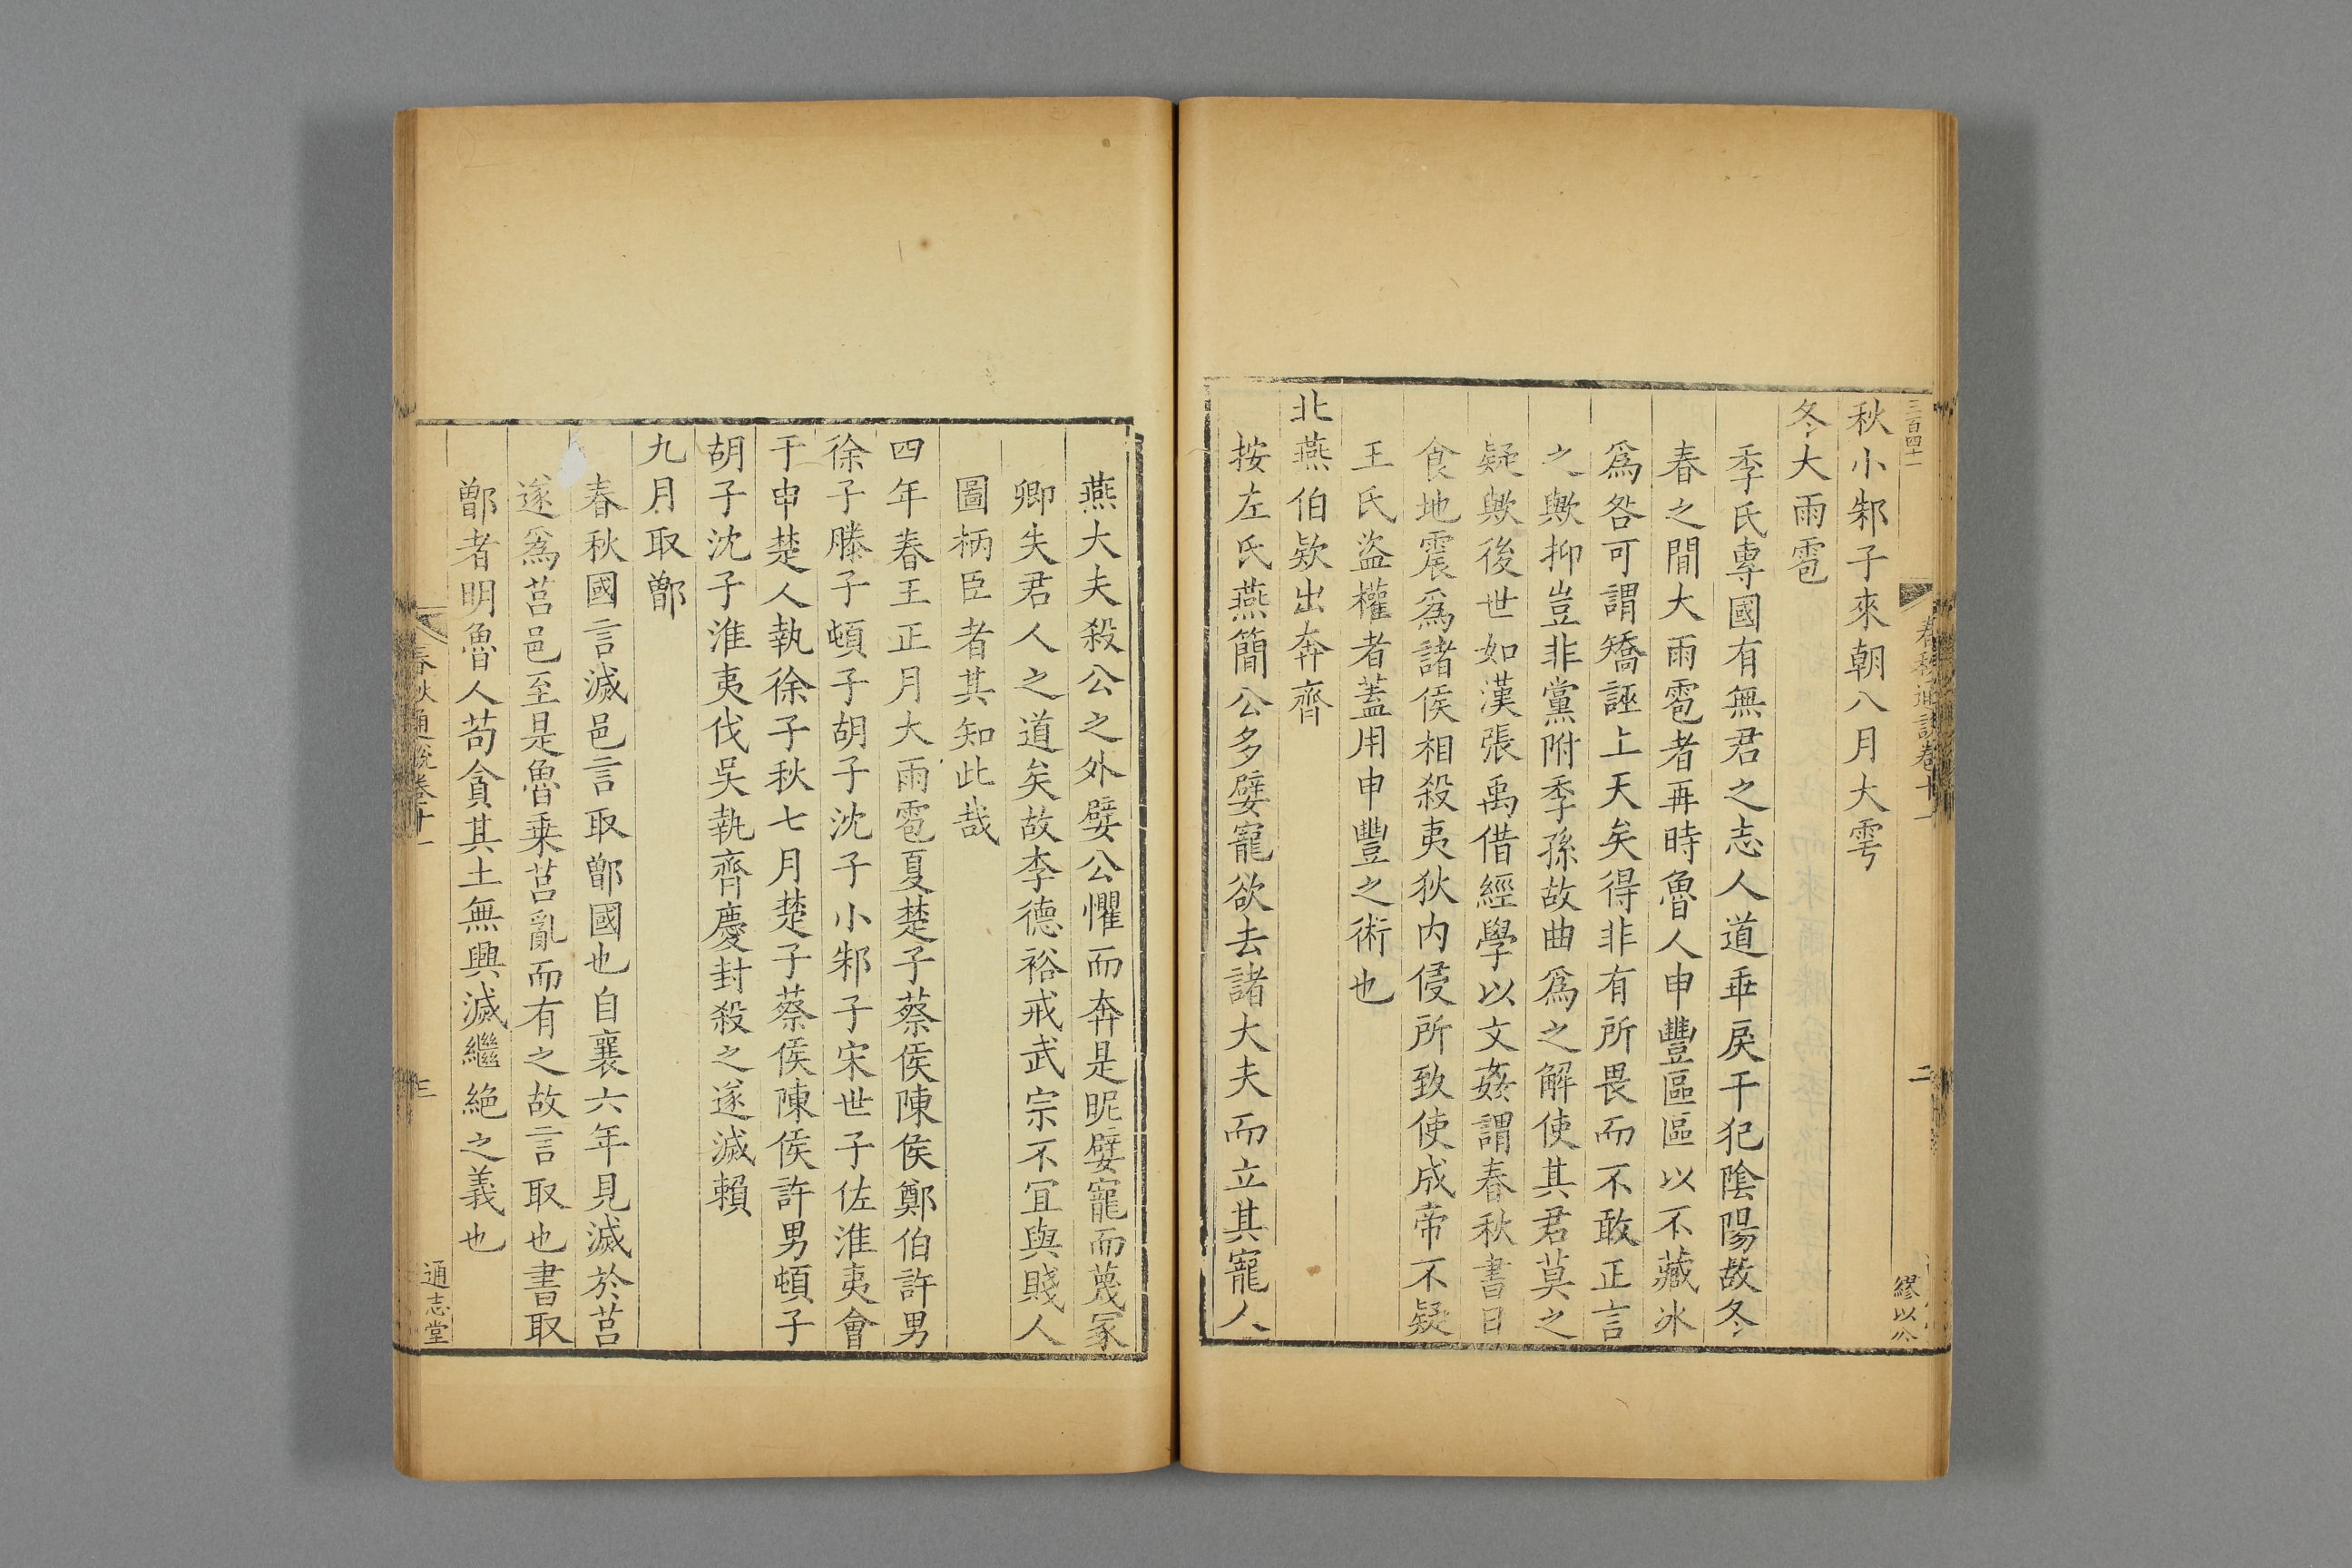 三百四十一
秋小邾子來朝八月大雩
冬大雨雹
季氏專國有無君之志人道乖戾干犯陰陽故冬
春之間大雨雹者再時魯人申豐區區以不藏冰
爲咎可謂矯誣上天矣得非有所畏而不敢正言
之歟抑豈非黨附季孫故曲爲之解使其君莫之
疑歟後世如漢張禹借經學以文姦謂春秋書日
食地震爲諸侯相殺夷狄内侵所致使成帝不疑
王氏盜權者蓋用申豐之術也
北燕伯欵出奔齊
按左氏燕簡公多嬖寵欲去諸大夫而立其寵人
春秋通說卷十一
二
繆以
燕大夫殺公之外嬖公懼而奔是昵嬖寵而蔑冢
卿失君人之道矣故李德裕戒武宗不冝與賤人
圖柄臣者其知此哉
四年春王正月大雨雹夏楚子蔡侯陳侯鄭伯許男
徐子滕子頓子胡子沈子小邾子宋世子佐淮夷會
于申楚人執徐子秋七月楚子蔡侯陳侯許男頓子
胡子沈子淮夷伐吳執齊慶封殺之遂滅賴
九月取鄫
春秋國言滅邑言取鄫國也自襄六年見滅於莒
遂爲莒邑至是魯乗莒亂而有之故言取也書取
鄫者明魯人苟貪其土無興滅繼絶之義也
春秋通說卷十一
三
通志堂